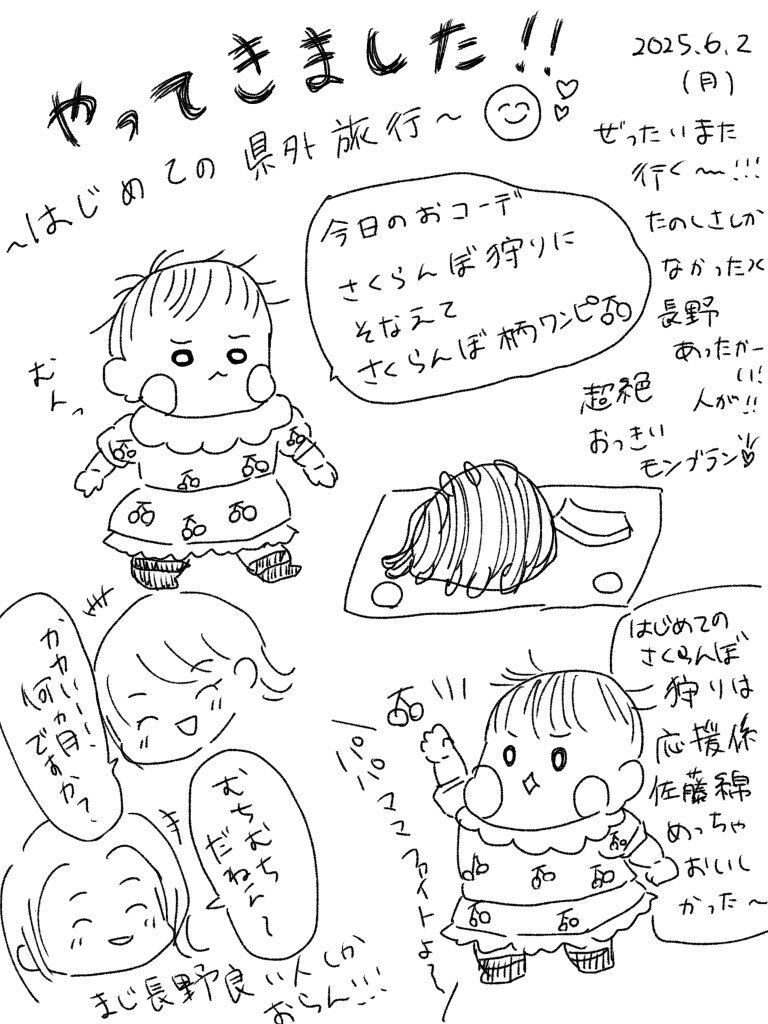 やってきました!!
~はじめての県外旅行~
2025.6.2
(月)
ぜったいまた
行く~!!!
たのしさしか
なかった
長野
あったかー
い!
人が!!
今日のおコーデ
さくらんぼ狩りに
そなえて
さくらんぼ柄ワンピ
むんっ
超絶
おっきい
モンブラン
かわいー!
何ヵ月
ですか?
むちむち
だねぇ~
まじ長野良い人しか
おらん!!!
はじめての
さくらんぼ
狩りは
応援係
佐藤錦
めっちゃ
おいし
かった~
パパママファイトよ~!